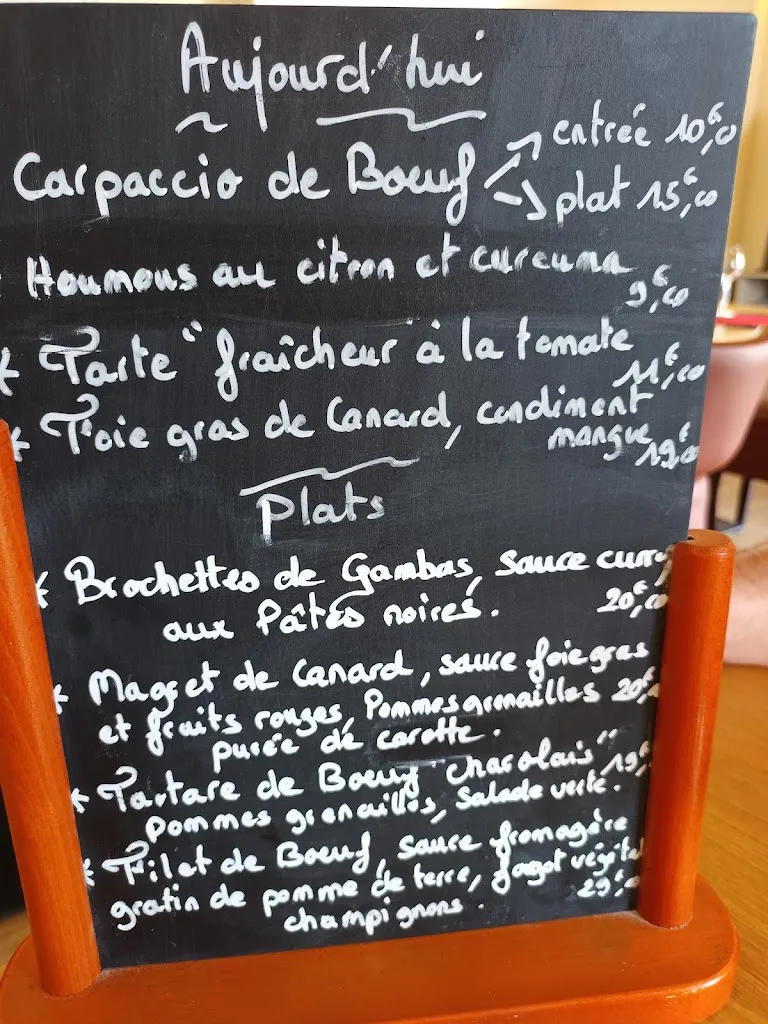 Aujourd'hui
Carpaccio de Boeuf → entrée 10€,00
→ plat 15€,00
Houmous au citron et curcuma
9€,00
* Tarte "fraîcheur" à la tomate
11€,00
* Foie gras de Canard, condiment
mangue 19€,00
Plats
* Brochettes de Gambas, sauce curry
aux Pâtes noires. 20€,00
* Magret de Canard, sauce foie gras
et fruits rouges, Pommes grenailles 20€,
purée de carotte.
* Tartare de Boeuf "charolais" 19€,
Pommes grenailles, Salade verte.
* Filet de Boeuf, sauce fromagère
gratin de pomme de terre, fagot végétal
champignons. 29€,00